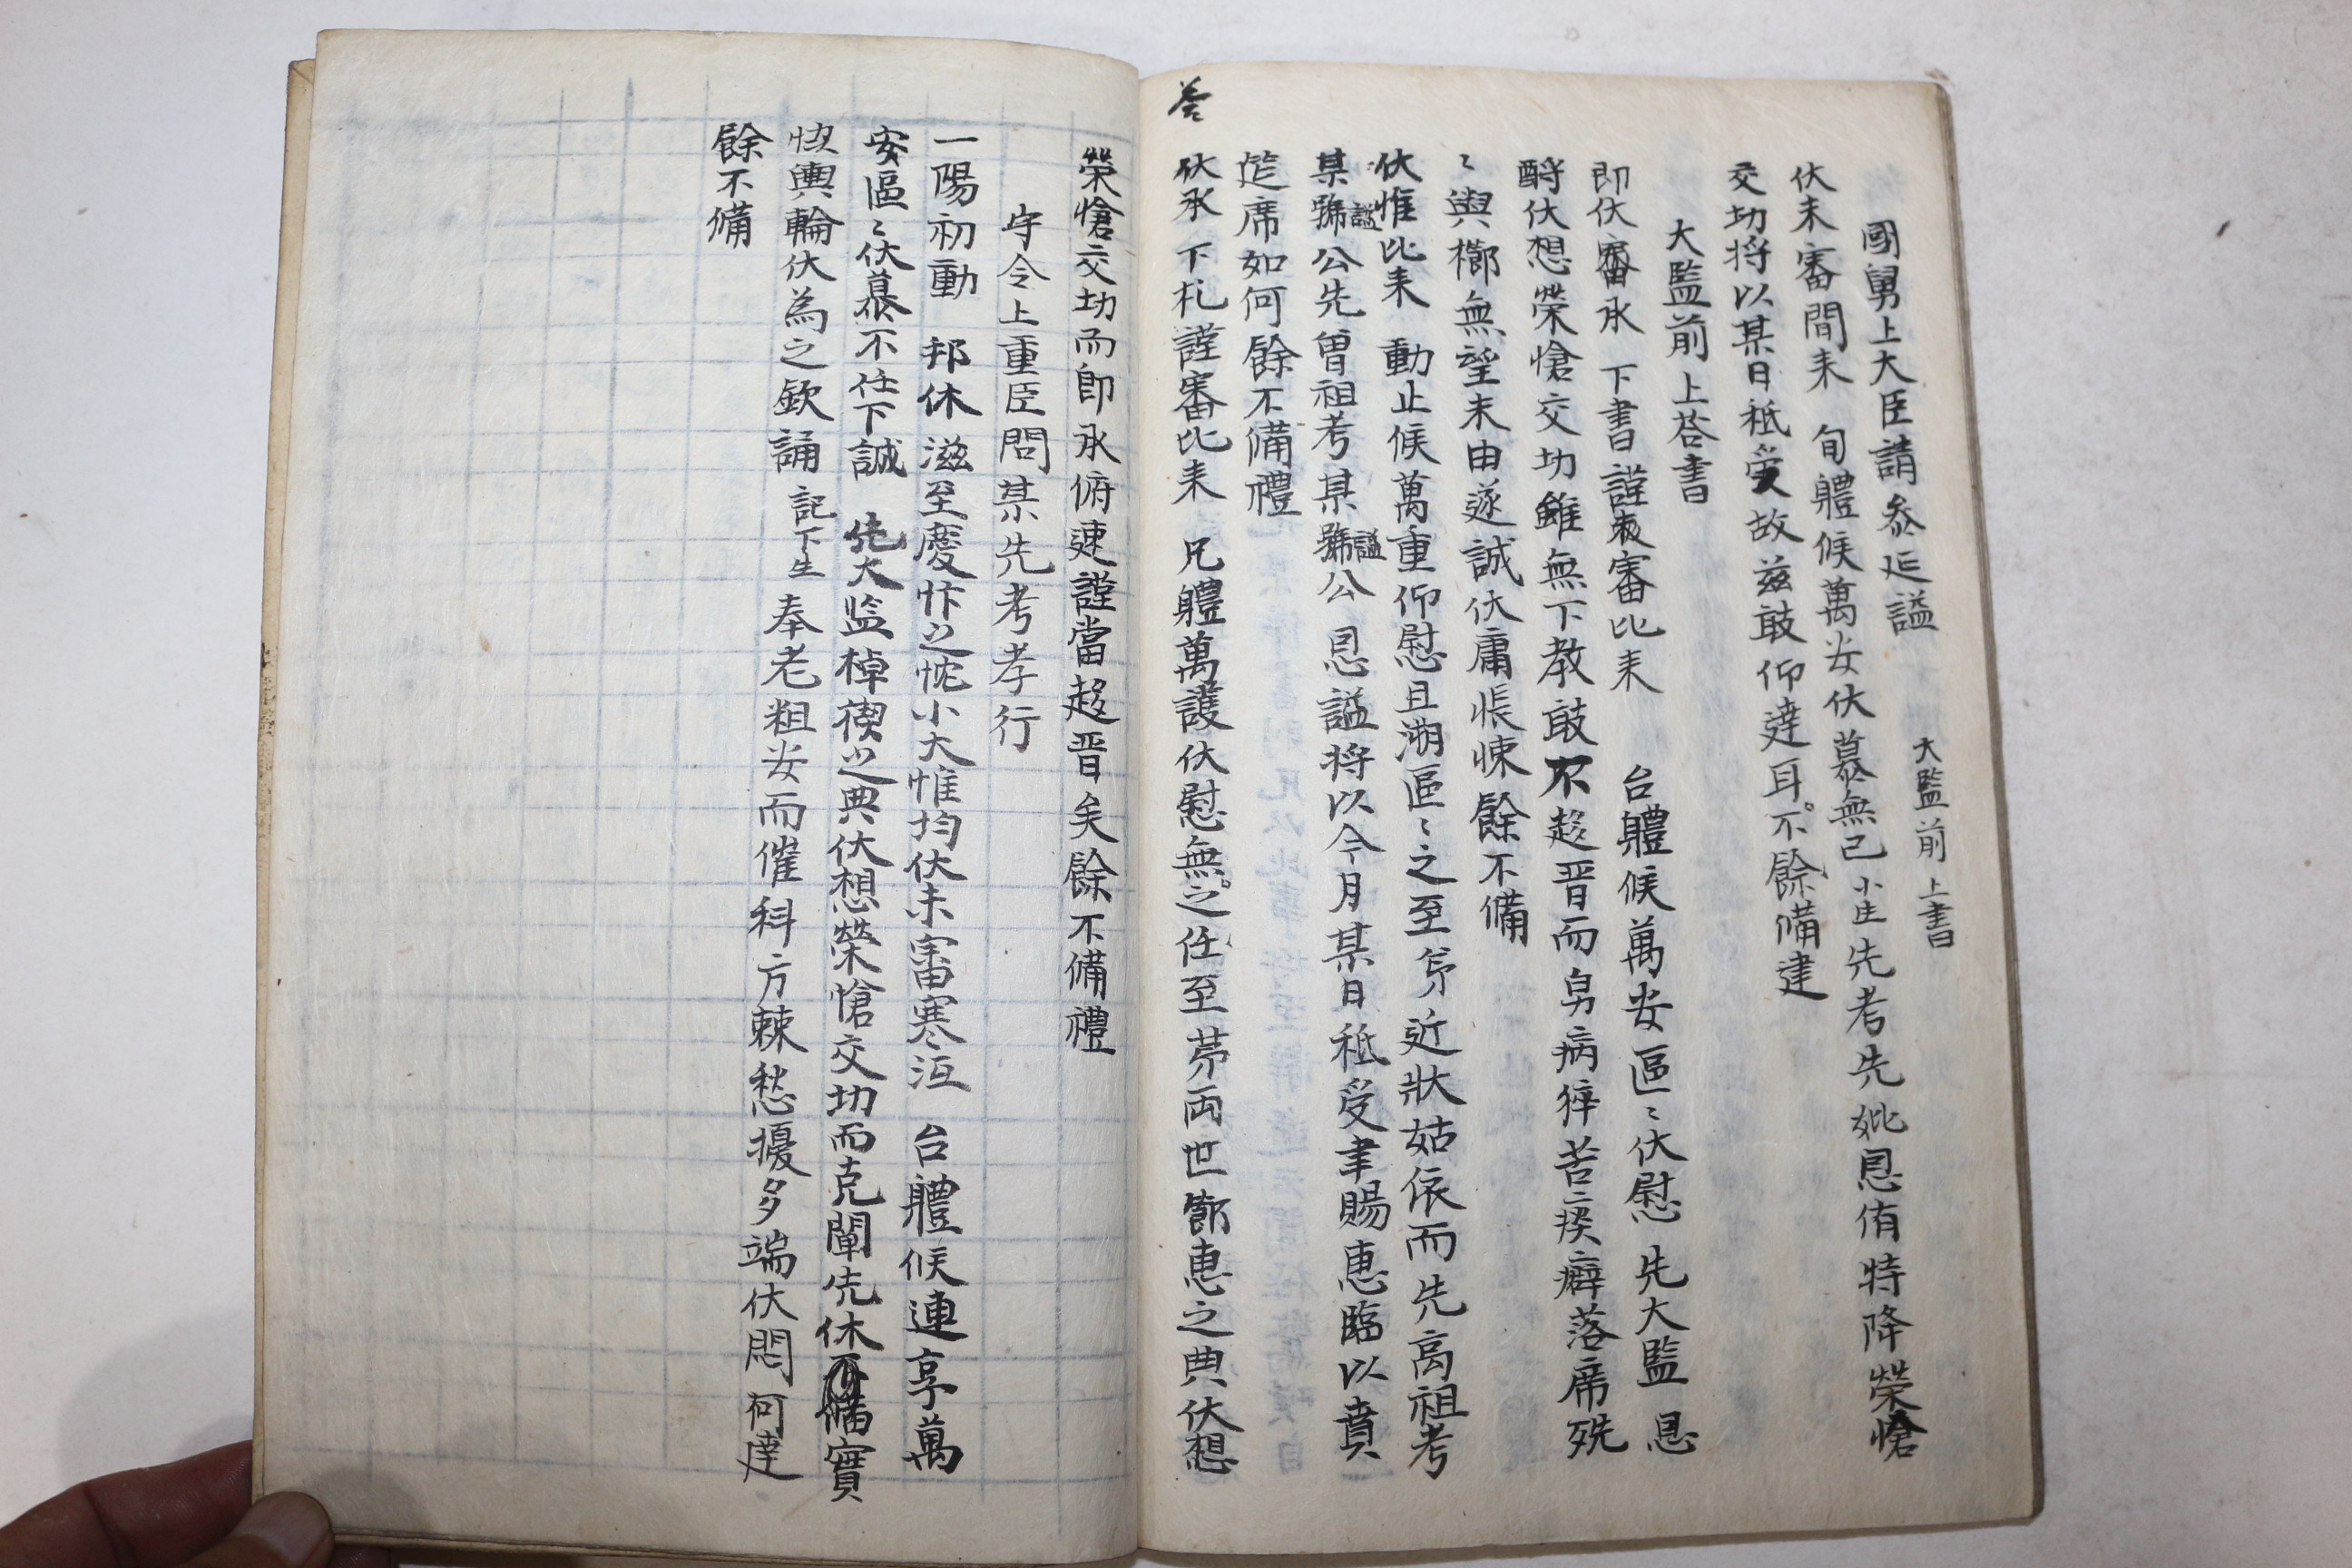 國舅上大臣請參延諡 大監前 上書
伏未審間來 旬體候萬安伏慕無已小生先考先妣恩侑特降榮愴
交切將以某日祗受故茲敢仰達耳不餘備達
大監前 上答書
即伏審承 下書謹審比來 台體候萬安區〻伏慰 先大監 恩
酹伏想榮愴交切雖無下教敢不趍晋而舅病猝苦痰癖落席殊
〻輿櫛無望末由遂誠伏庸悵悚餘不備
伏惟比來 動止候萬重仰慰且溯區〻之至弟近狀姑依而先高祖考
某號諡公先曾祖考某號諡公 恩諡將以今月某日祗受聿賜惠臨以賁
筵席如何餘不備禮
答
伏承 下札謹審比來 兄體萬護伏慰無之任至弟兩世節惠之典伏想
榮愴交切而卽承俯速謹當趍晋矣餘不備禮
守令上重臣問某先考孝行
一陽初動 邦休滋至慶忭之忱小大惟均伏未審寒沍 台體候連享萬
安區〻伏慕不任下誠 先大监棹禊之典伏想榮愴交切而克闡先休 備實
恔輿輪伏為之欽誦 記下生奉老粗安而催科方棘愁擾多端伏悶何達
餘不備